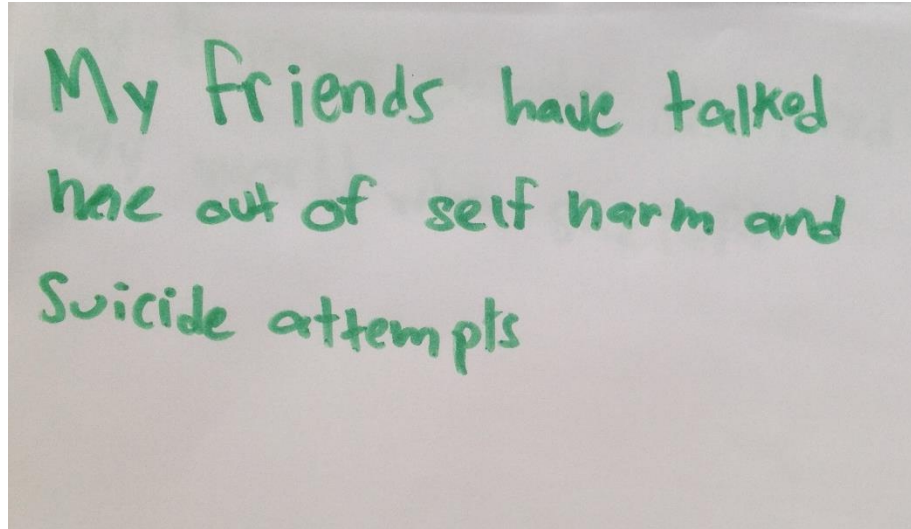 My friends have talked
me out of self harm and
Suicide attempts